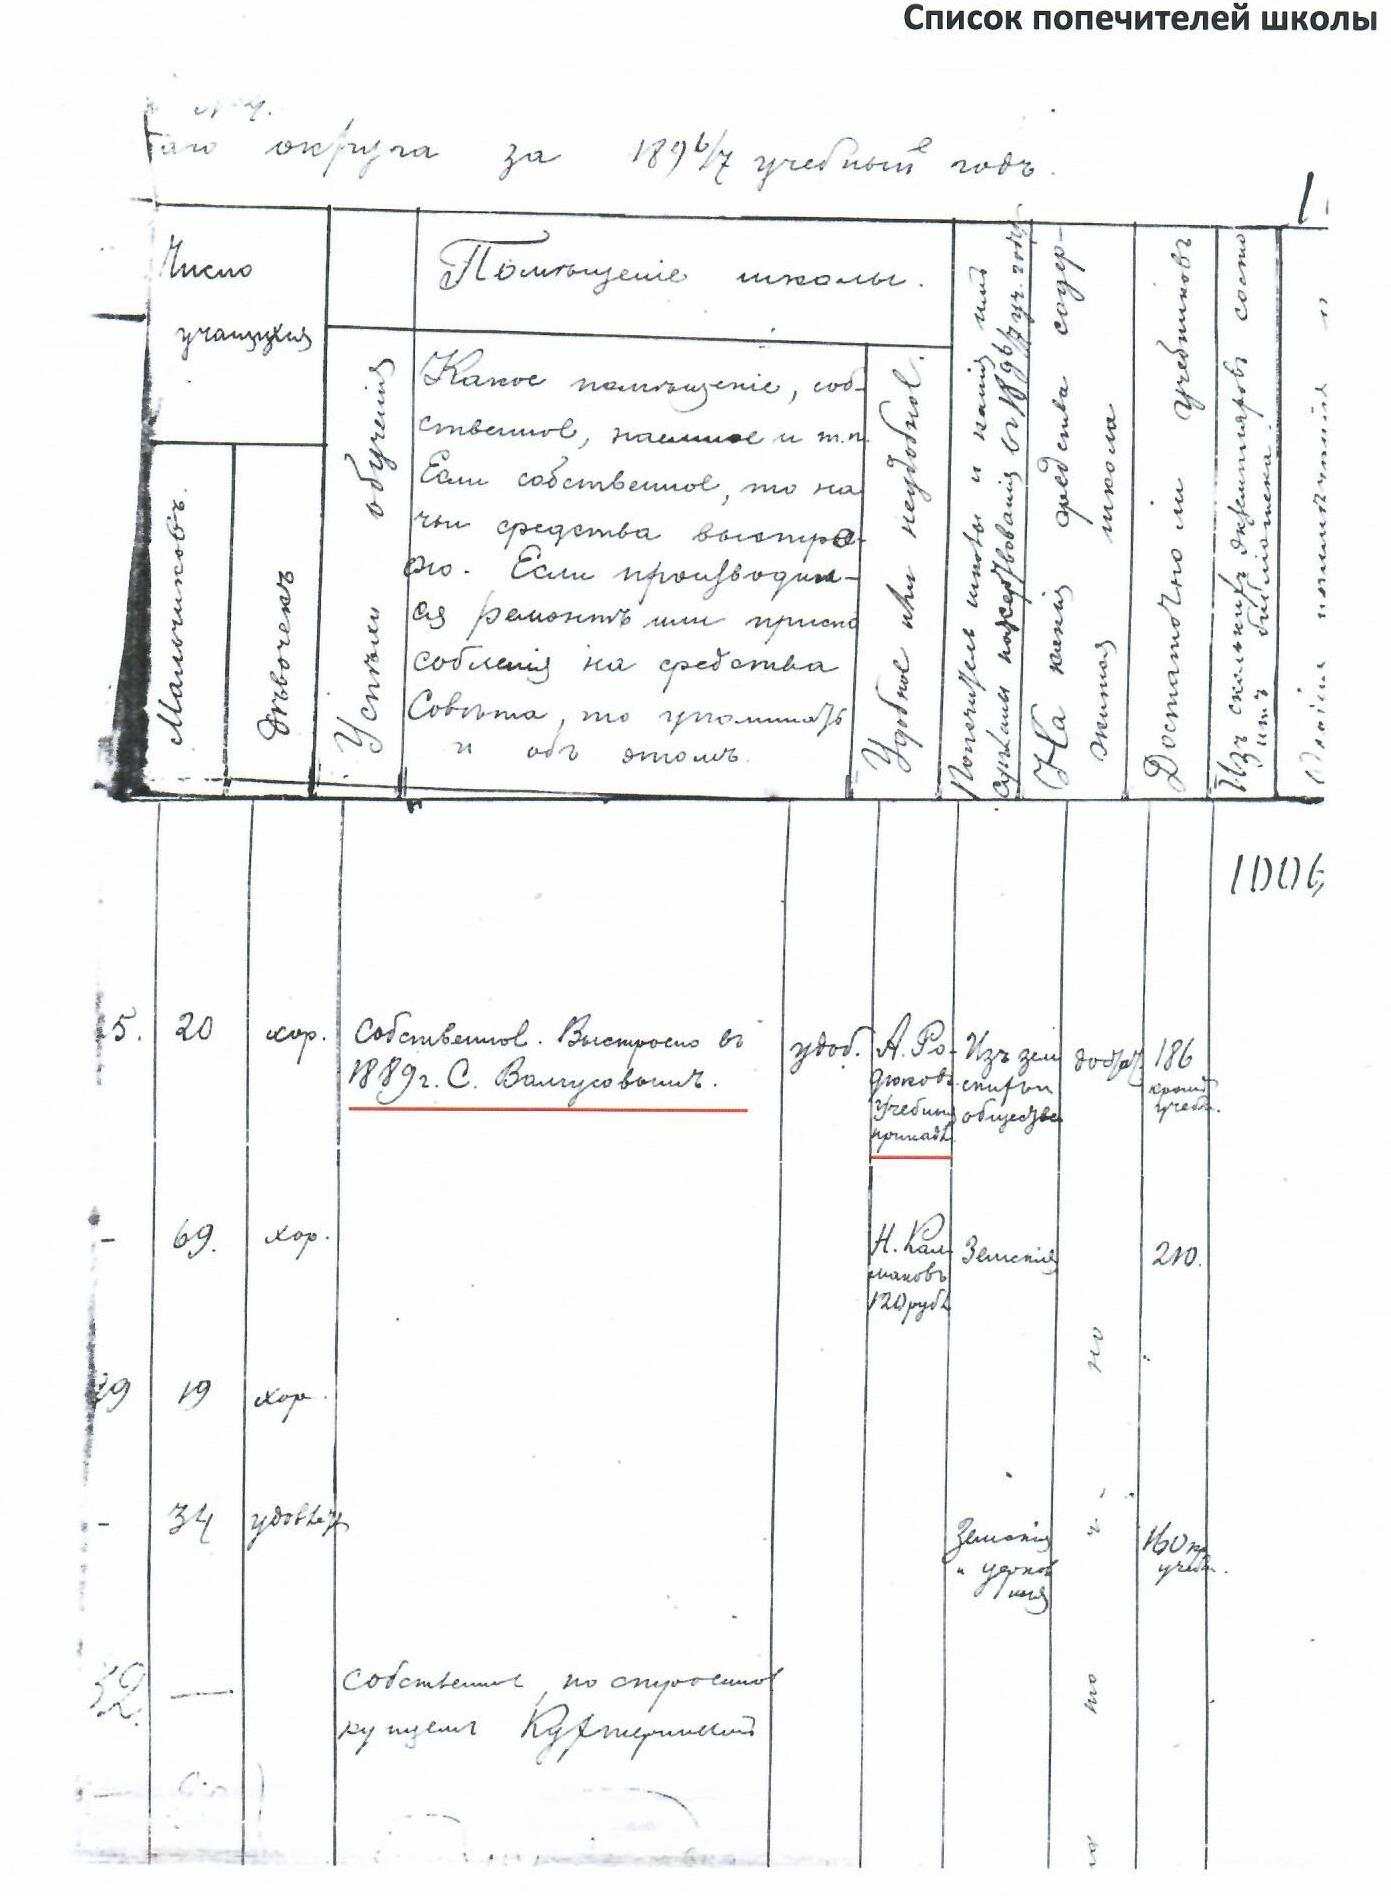 Список попечителей школы
округа за 1896/7 учебный годъ.
Число
учащихся
Мальчиковъ.
Дѣвочекъ
Успѣхи обученія
Помѣщеніе школы.
Какое помѣщеніе, соб-
ственное, наемное и т.п.
Если собственное, то на
чьи средства выстрое-
но. Если производил-
ся ремонтъ или приспо
собленія на средства
Совѣта, то упоминать
и объ этомъ.
Удобное или неудобное.
Попечитель школы и какія имъ
въ 1896/7 уч. году
На какія средства содер-
жится школа
Достаточно ли учебниковъ
Изъ сколькихъ экземпляровъ состо
итъ библіотека.
1006
5. 20 хор. Собственное. Выстроено въ
1889 г. С. Валгусовымъ.
удоб.
А. Ро-
дюковъ
учебныя
Изъ зем
общества
186
кромѣ
учебн.
- 69. хор.
Н. Кал-
маковъ
120 рубл.
Земскія
210.
19 хор.
- 34 удовлет
Земскія
и церков
ныя
160 кр
учебн.
32. — собственное, построенное
купцемъ